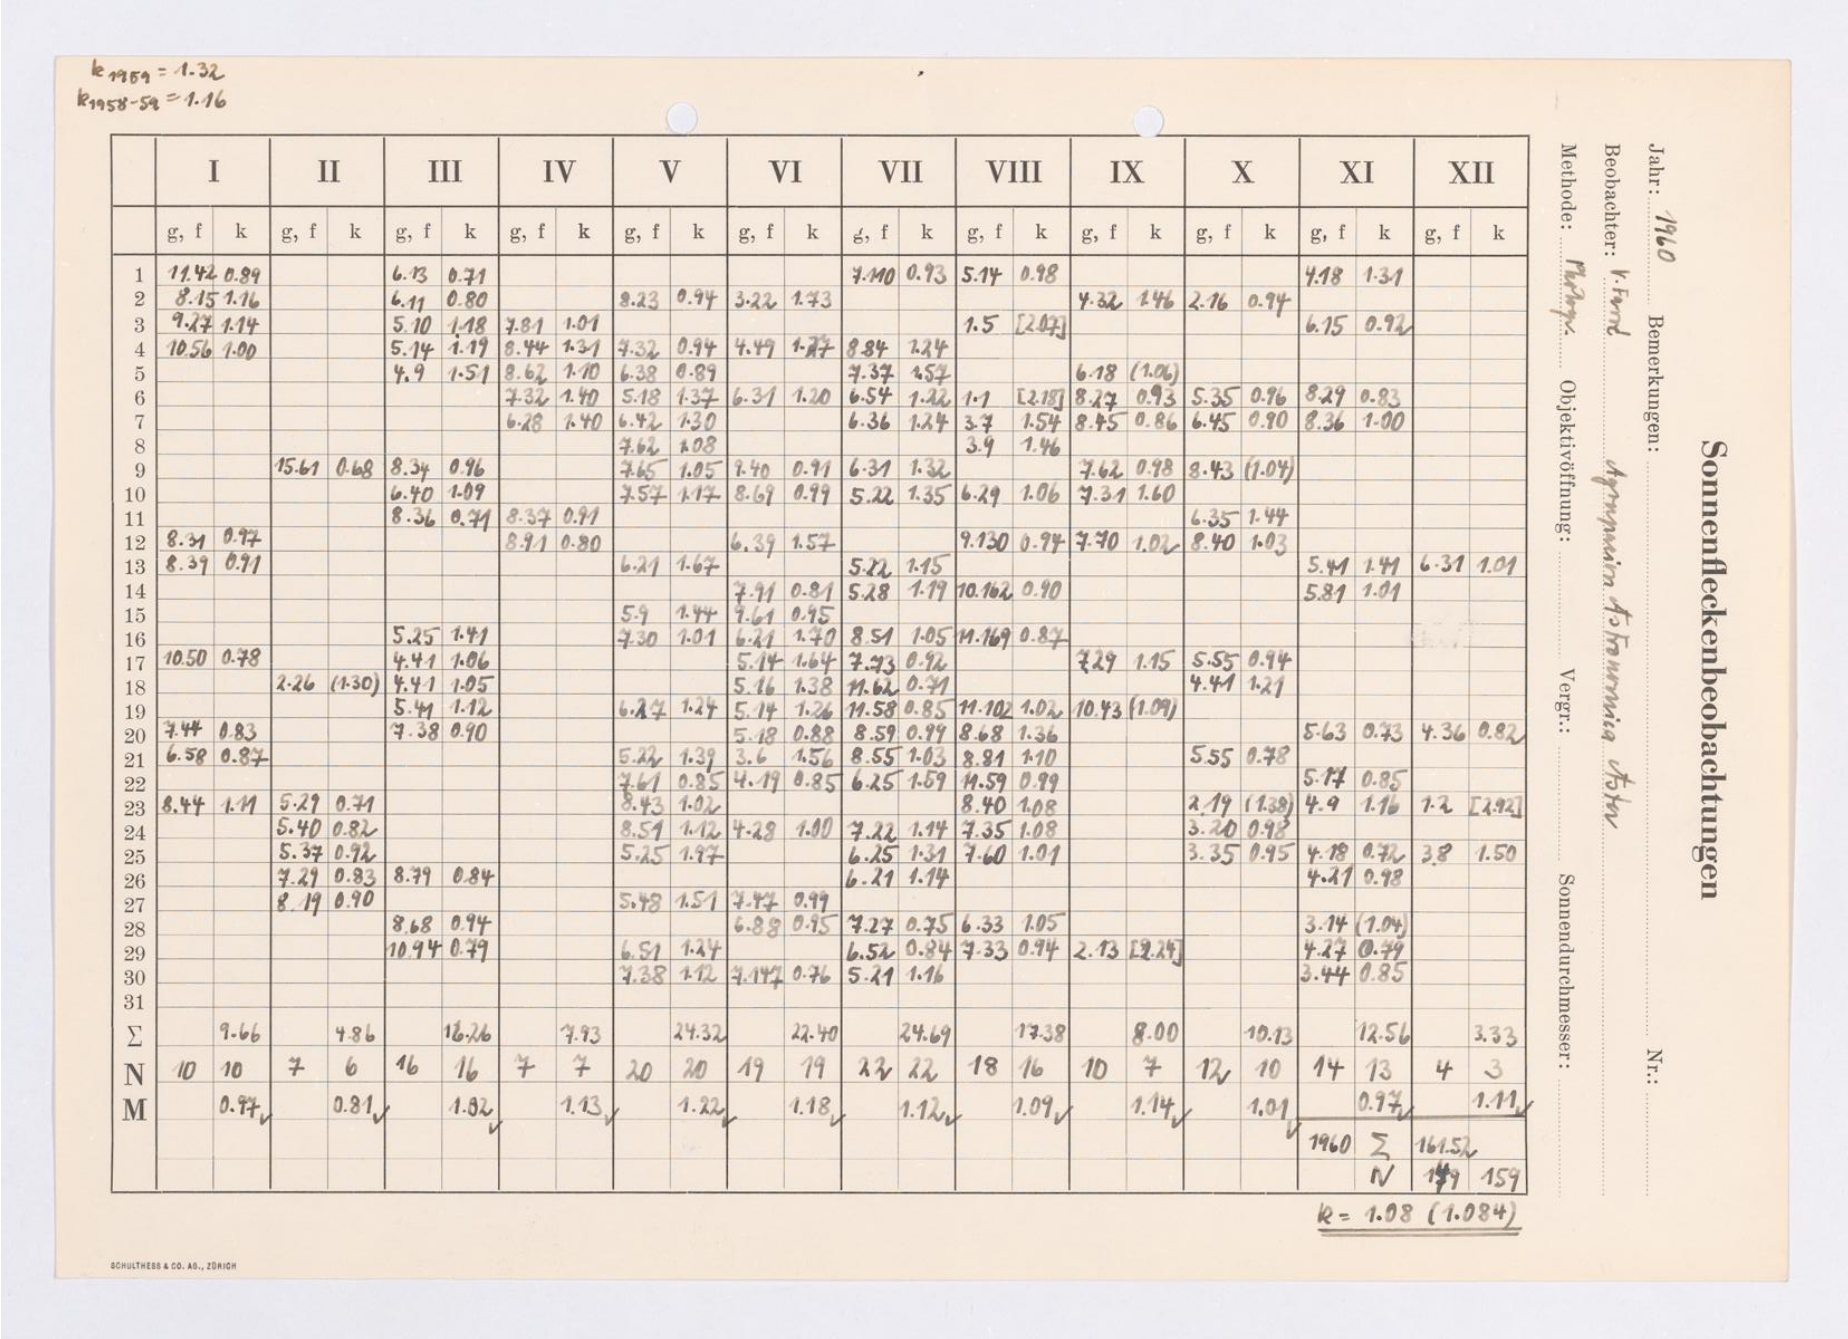 k1959 = 1.32
k1958-59 = 1.16
Sonnenfleckenbeobachtungen
Jahr: 1960 Bemerkungen: Nr.:
Beobachter: Astronomica Aster
Methode: Objektivöffnung: Vergr.: Sonnendurchmesser:
I II III IV V VI VII VIII IX X XI XII
g, f k g, f k g, f k g, f k g, f k g, f k g, f k g, f k g, f k g, f k g, f k g, f k
1 11.42 0.89 6.13 0.71 7.110 0.93 5.14 0.98 4.18 1.31
2 8.15 1.16 6.11 0.80 8.23 0.94 3.22 1.73 4.32 1.46 2.16 0.94
3 9.27 1.14 5.10 1.18 7.81 1.01 1.5 [2.07] 6.15 0.92
4 10.56 1.00 5.14 1.19 8.44 1.31 7.32 0.94 4.49 1.27 8.84 1.24
5 4.9 1.51 8.62 1.10 6.38 0.89 7.37 1.57 6.18 (1.06)
6 7.32 1.40 5.18 1.37 6.31 1.20 6.54 1.22 1.1 [2.18] 8.27 0.93 5.35 0.96 8.29 0.83
7 6.28 1.40 6.42 1.30 6.36 1.24 3.7 1.54 8.45 0.86 6.45 0.90 8.36 1.00
8 7.62 1.08 3.9 1.46
9 15.61 0.68 8.34 0.96 7.65 1.05 9.40 0.91 6.31 1.32 7.62 0.98 8.43 (1.04)
10 6.40 1.09 7.57 1.17 8.69 0.99 5.22 1.35 6.29 1.06 7.31 1.60
11 8.36 0.71 8.37 0.91 6.35 1.44
12 8.31 0.97 8.91 0.80 6.39 1.57 9.130 0.94 7.70 1.02 8.40 1.03
13 8.39 0.91 6.21 1.67 5.22 1.15 5.41 1.41 6.31 1.01
14 7.91 0.81 5.28 1.19 10.162 0.90 5.81 1.01
15 5.9 1.44 9.61 0.95
16 5.25 1.41 7.30 1.01 6.21 1.70 8.51 1.05 11.169 0.87
17 10.50 0.78 4.41 1.06 5.14 1.64 7.73 0.92 7.29 1.15 5.55 0.94
18 2.26 (1.30) 4.41 1.05 5.16 1.38 11.62 0.71 4.41 1.21
19 5.41 1.12 6.27 1.24 5.14 1.26 11.58 0.85 11.102 1.02 10.43 (1.09)
20 7.44 0.83 7.38 0.90 5.18 0.88 8.59 0.99 8.68 1.36 5.63 0.73 4.36 0.82
21 6.58 0.87 5.22 1.39 3.6 1.56 8.55 1.03 8.81 1.10 5.55 0.78
22 7.61 0.85 4.19 0.85 6.25 1.59 11.59 0.99 5.17 0.85
23 8.44 1.11 5.29 0.71 8.43 1.02 8.40 1.08 2.19 (1.38) 4.9 1.16 1.2 [2.92]
24 5.40 0.82 8.51 1.12 4.28 1.00 7.22 1.14 7.35 1.08 3.20 0.98
25 5.37 0.92 5.25 1.97 6.25 1.31 7.60 1.01 3.35 0.95 4.18 0.72 3.8 1.50
26 7.29 0.83 8.79 0.84 6.21 1.14 4.21 0.98
27 8.19 0.90 5.48 1.51 7.47 0.99
28 8.68 0.94 6.88 0.95 7.27 0.75 6.33 1.05 3.14 (1.04)
29 10.94 0.79 6.51 1.24 6.52 0.84 7.33 0.94 2.13 [2.24] 4.27 0.79
30 7.38 1.12 7.147 0.76 5.21 1.16 3.44 0.85
31
Σ 9.66 4.86 16.26 7.93 24.32 22.40 24.69 17.38 8.00 10.13 12.56 3.33
N 10 10 7 6 16 16 7 7 20 20 19 19 22 22 18 16 10 7 12 10 14 13 4 3
M 0.97 0.81 1.02 1.13 1.22 1.18 1.12 1.09 1.14 1.01 0.97 1.11
1960 Σ 161.52
N 159
k = 1.08 (1.084)
SCHULTHESS & CO. AG., ZÜRICH